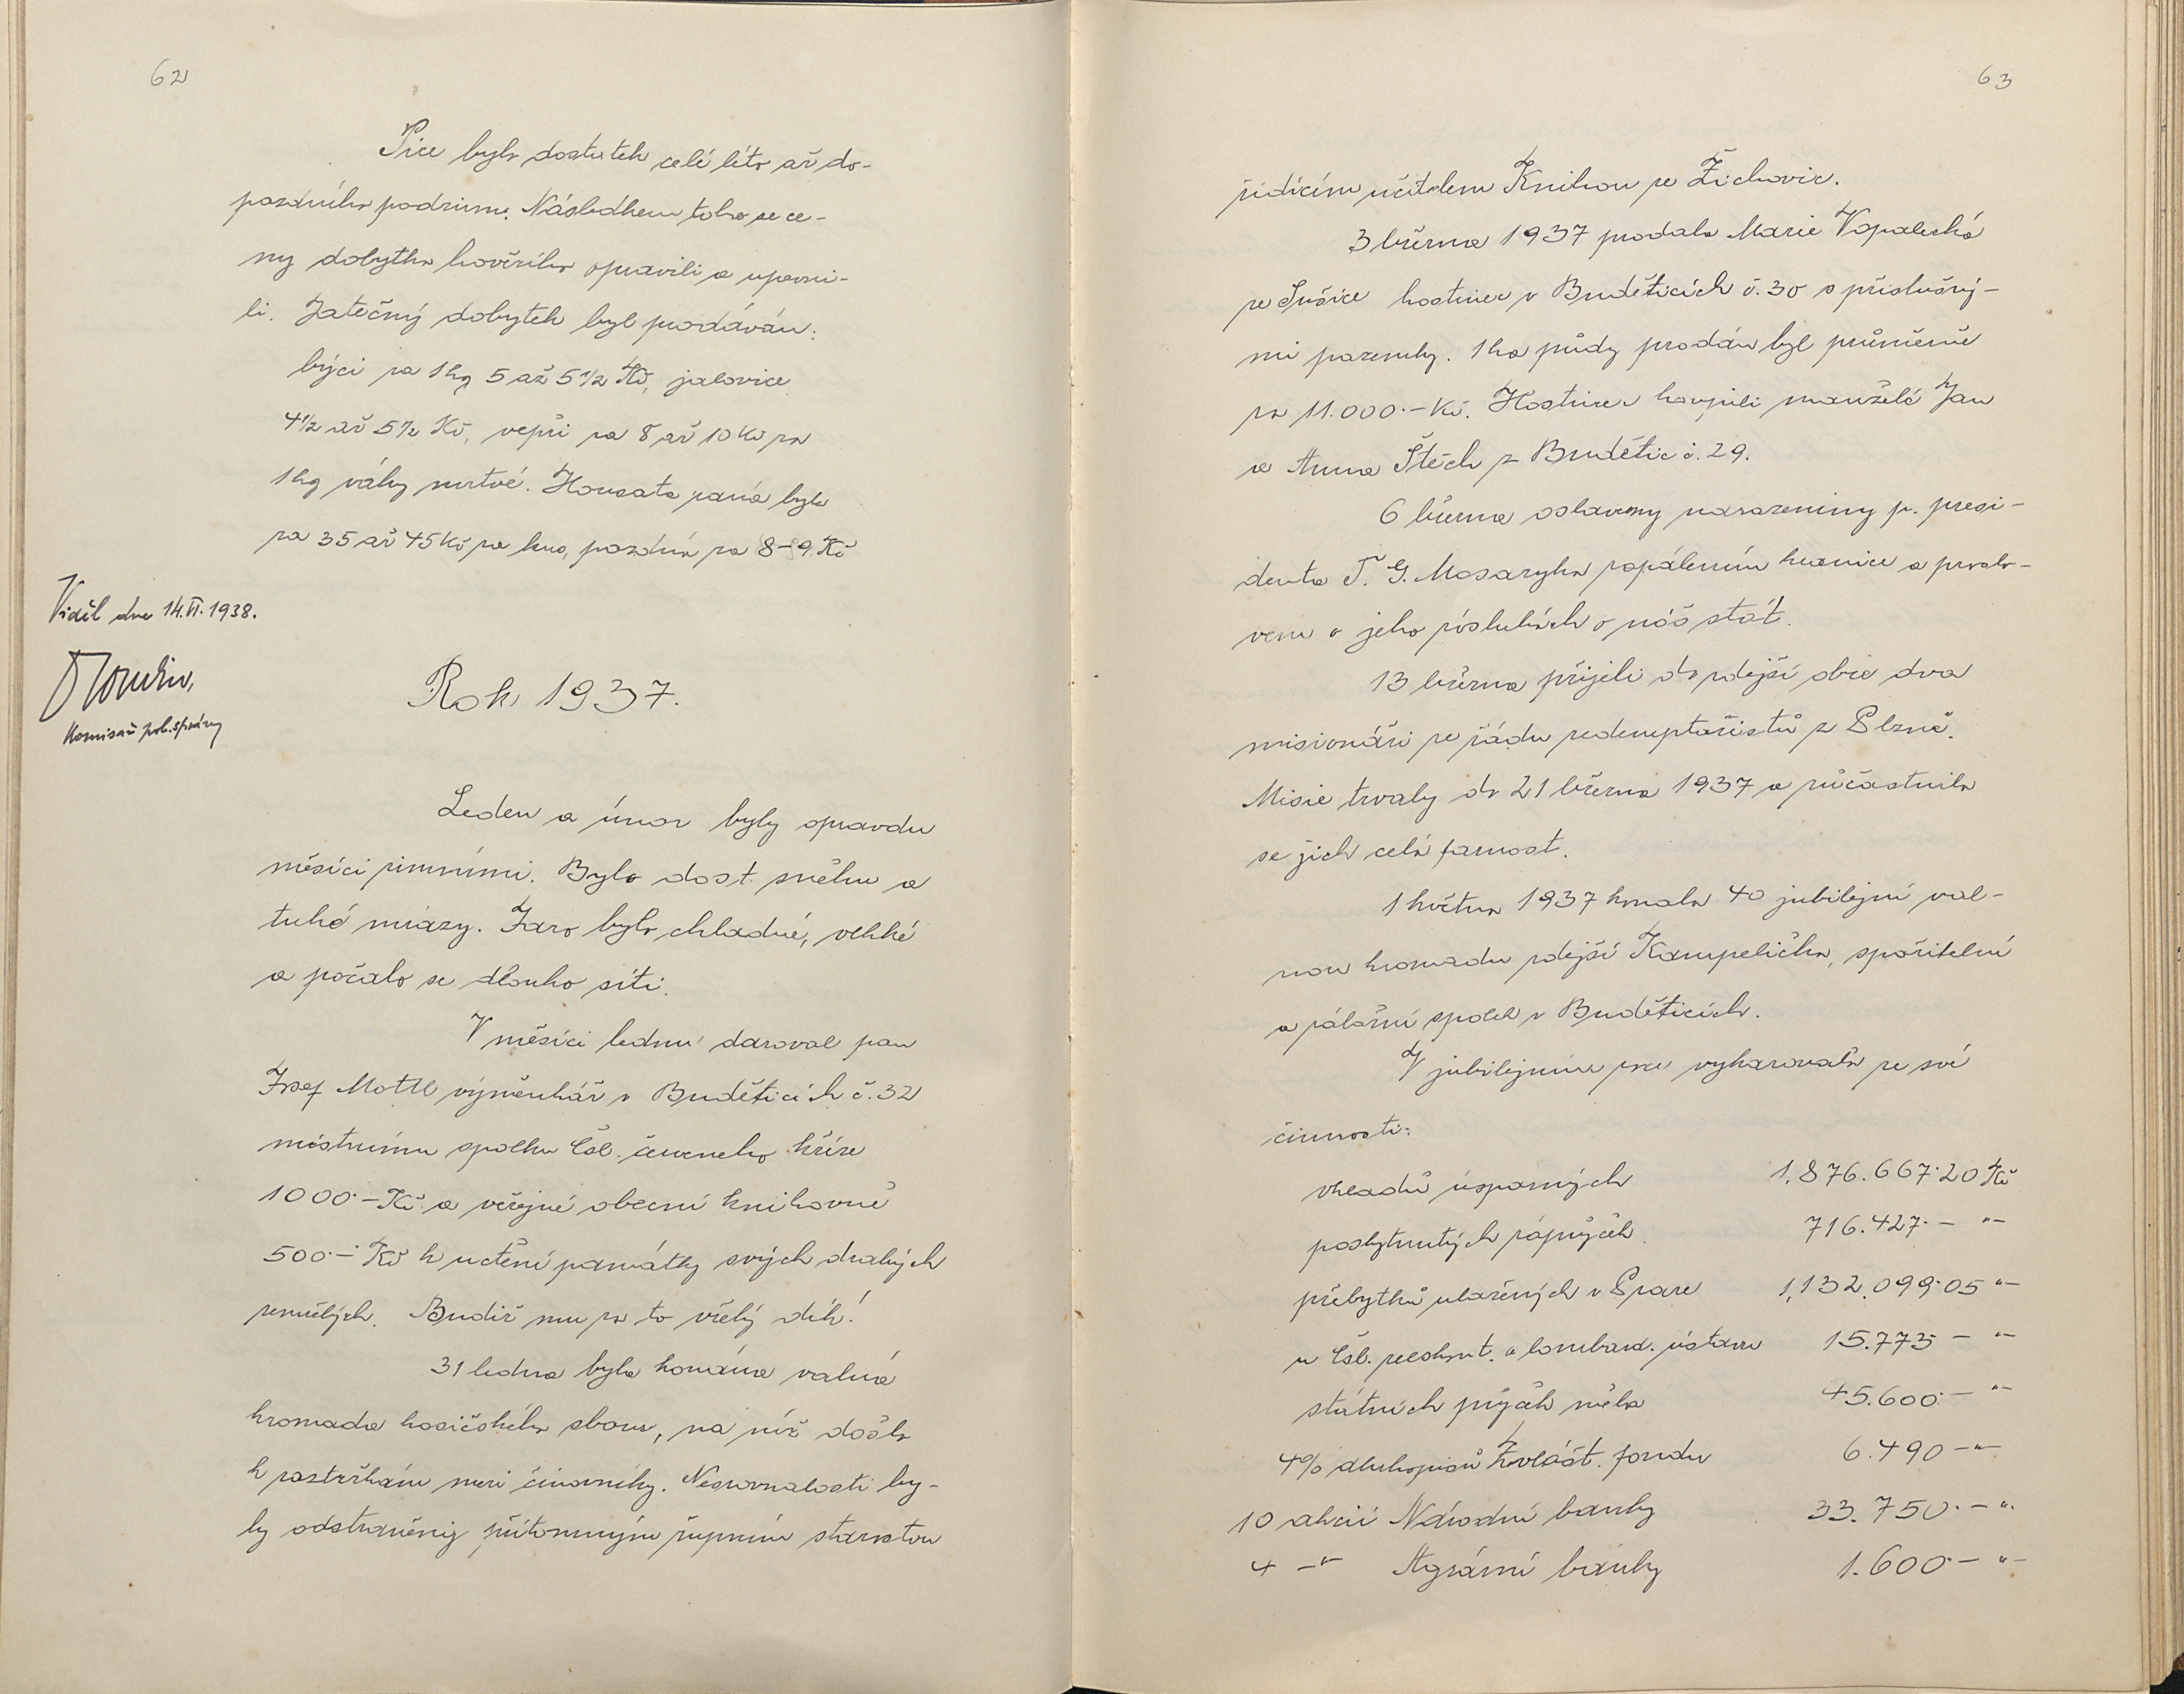 62
Píce bylo dostatek celé léto až do-
pozdního podzimu. Následkem toho se ce-
ny dobytka hovězího spravili a upevni-
li. Jatečný dobytek byl prodáván:
býci za 1 kg 5 až 5 1/2 Kč, jalovice
4 1/2 až 5 1/2 Kč, vepři za 8 až 10 Kč za
1 kg váhy mrtvé. Housata raná byla
za 35 až 45 Kč za kus, pozdní za 8-9 Kč
Viděl dne 14.VI.1938.
Komisař pol. správy
Rok 1937.
Leden a únor byly opravdu
měsíci zimními. Bylo dost sněhu a
tuhé mrazy. Jaro bylo chladné, vlhké
a počalo se dlouho síti.
V měsíci lednu daroval pan
Josef Mottl výměnkář v Buděticích č. 32
místnímu spolku Čsl. červeného kříže
1000.- Kč a veřejné obecní knihovně
500.- Kč k uctění památky svých drahých
zemřelých. Budiž mu za to vřelý dík!
31 ledna byla konána valná
hromada hasičského sboru, na níž došlo
k roztržkám mezi činovníky. Nesrovnalosti by-
ly odstraněny přítomným župním starostou
63
řídícím učitelem Knihou ze Žichovic.
3 března 1937 prodala Marie Vopalecká
ze Sušice hostinec v Buděticích č. 30 s příslušný-
mi pozemky. 1 ha půdy prodán byl průměrně
za 11.000.- Kč. Hostinec koupili manželé Jan
a Anna Štěch z Budětic č. 29.
6 března oslaveny narozeniny p. presi-
denta T. G. Masaryka zapálením hranice a proslo-
vem o jeho zásluhách o náš stát.
13 března přijeli do zdejší obce dva
misionáři ze řádu redemptoristů z Plzně.
Misie trvaly do 21 března 1937 a zúčastnila
se jich celá farnost.
1 května 1937 konala 40 jubilejní val-
nou hromadu zdejší Kampelička, spořitelní
a záložní spolek v Buděticích.
V jubilejním roce vykazovala ze své
činnosti:
vkladů úsporných 1,876.667.20 Kč
poskytnutých zápůjček 716.427.- "-
přebytků uložených v Praze 1,132.099.05 "-
u Čsl. reeskont. a lombard. ústavu 15.773 - "-
státních půjček měla 45.600.- "-
4% dluhopisů Zvlášt. fondu 6.490 -"-
10 akcií Národní banky 33.750.- ".
4 -"- Agrární banky 1.600.- "-